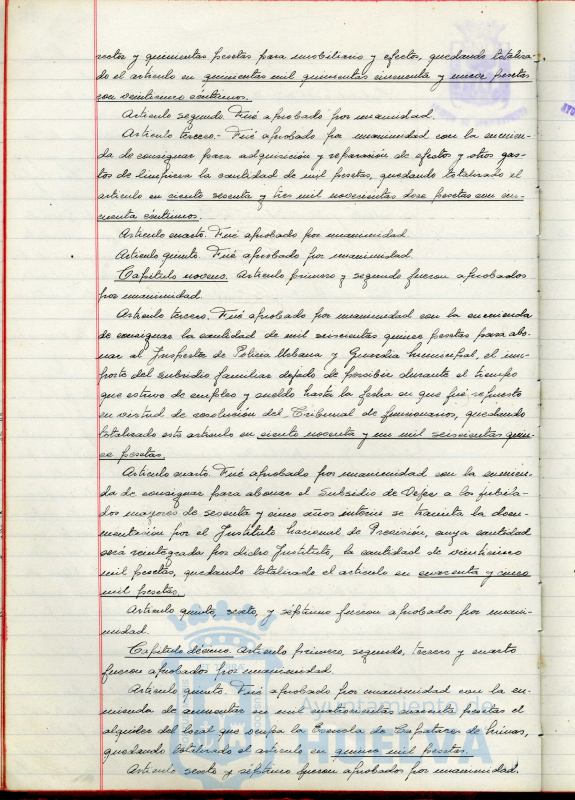 rector y quinientas pesetas para mobiliario y efectos, quedando totaliza-
do el artículo en quinientas mil quinientas cincuenta y nueve pesetas
con veintinueve céntimos.
Artículo segundo. Fué aprobado por unanimidad.
Artículo tercero.- Fué aprobado por unanimidad con la enmien-
da de consignar para adquisición y reparación de efectos y otros gas-
tos de limpieza la cantidad de mil pesetas, quedando totalizado el
artículo en ciento sesenta y tres mil novecientas doce pesetas con cin-
cuenta céntimos.
Artículo cuarto. Fué aprobado por unanimidad.
Artículo quinto. Fué aprobado por unanimidad.
Capítulo noveno. Artículo primero y segundo fueron aprobados
por unanimidad.
Artículo tercero. Fué aprobado por unanimidad con la enmienda
de consignar la cantidad de mil seiscientas quince pesetas para abo-
nar al Inspector de Policía Urbana y Guardia Municipal, el im-
porte del subsidio familiar dejado de percibir durante el tiempo
que estuvo de empleo y sueldo hasta la fecha en que fué repuesto
en virtud de resolución del Tribunal de funcionarios, quedando
totalizado este artículo en ciento noventa y un mil seiscientas quin-
ce pesetas.
Artículo cuarto. Fué aprobado por unanimidad con la enmien-
da de consignar para abonar el Subsidio de Vejez a los jubila-
dos mayores de sesenta y cinco años interin se tramita la docu-
mentación por el Instituto Nacional de Previsión, cuya cantidad
será reintegrada por dicho Instituto, la cantidad de veinticinco
mil pesetas, quedando totalizado el artículo en cuarenta y cinco
mil pesetas.
Artículo quinto, sexto, y séptimo fueron aprobados por unani-
midad.
Capítulo décimo. Artículo primero, segundo, tercero y cuarto
fueron aprobados por unanimidad.
Artículo quinto. Fué aprobado por unanimidad con la en-
mienda de aumentar en mil cuatrocientas noventa pesetas el
alquiler del local que ocupa la Escuela de Capataces de Minas,
quedando totalizado el artículo en quince mil pesetas.
Artículo sexto y séptimo fueron aprobados por unanimidad.
Ayuntamiento de